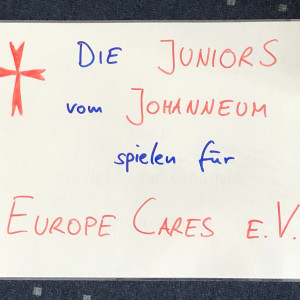 DIE JUNIORS
vom JOHANNEUM
spielen für
EUROPE CARES e.V.